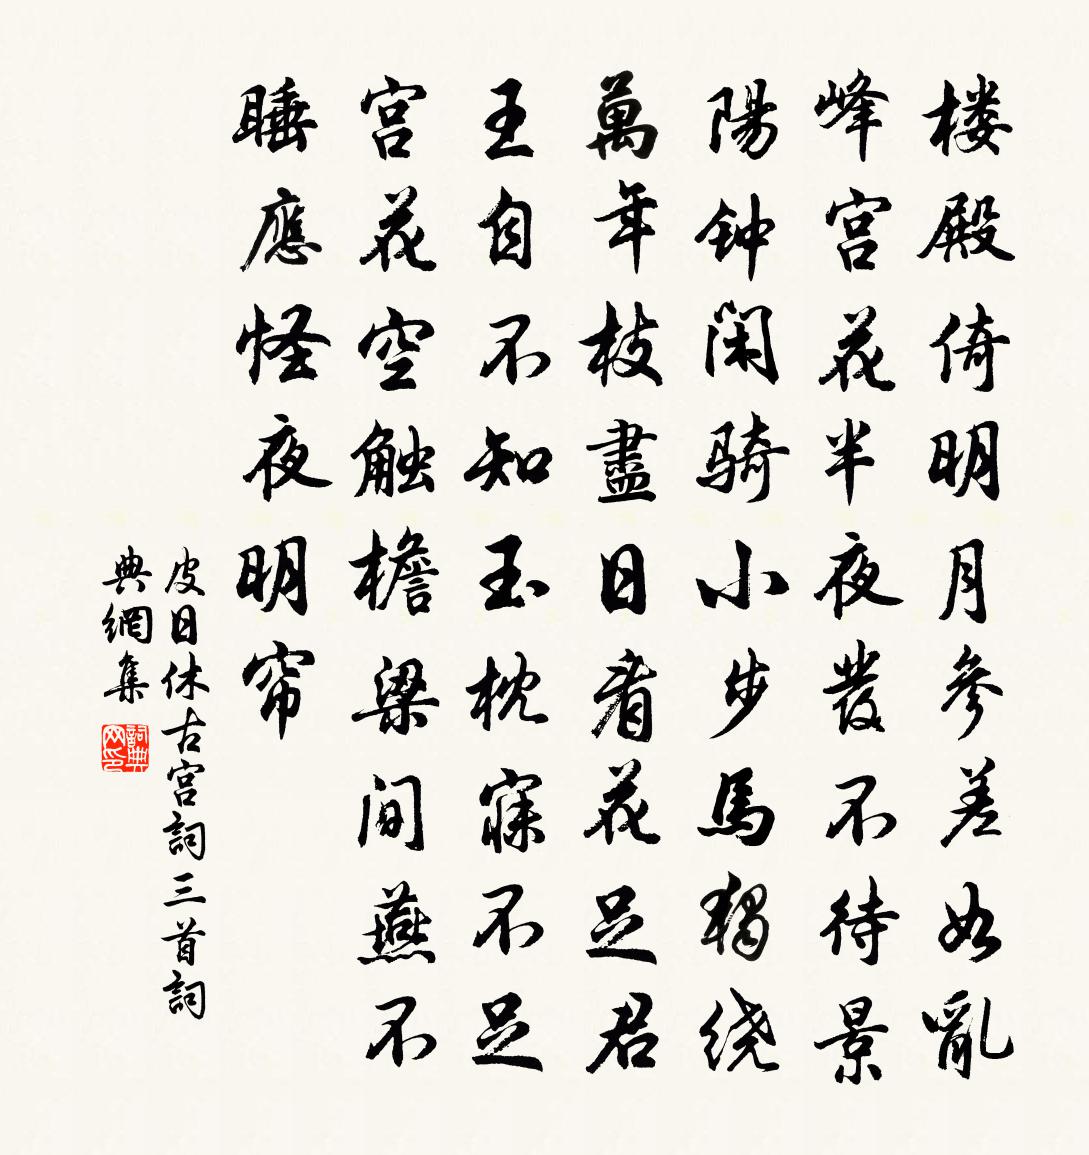 楼殿倚明月参差如亂
峰宫花半夜發不待景
陽钟闲骑小步馬獨绕
萬年枝盡日看花足君
王自不知玉枕寐不足
宫花空触檐梁间燕不
睡應怪夜明帘
皮日休古宫詞三首詞
典網集
詞典网印